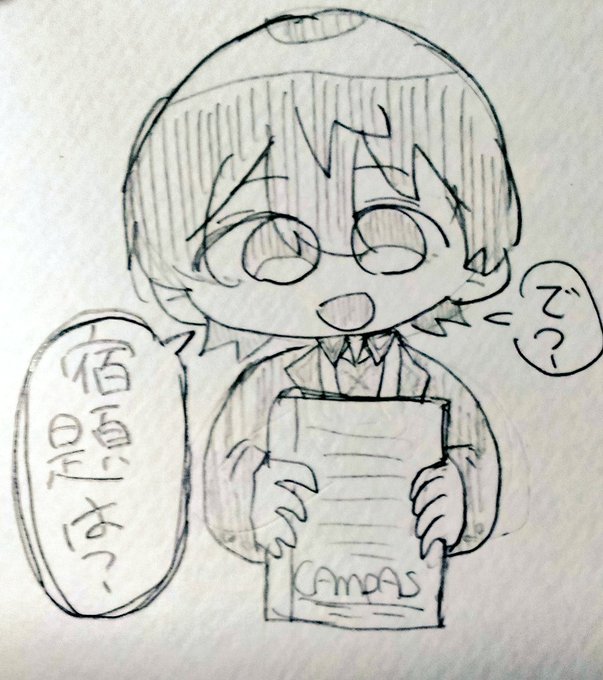 で?
宿題は?
CAMPAS